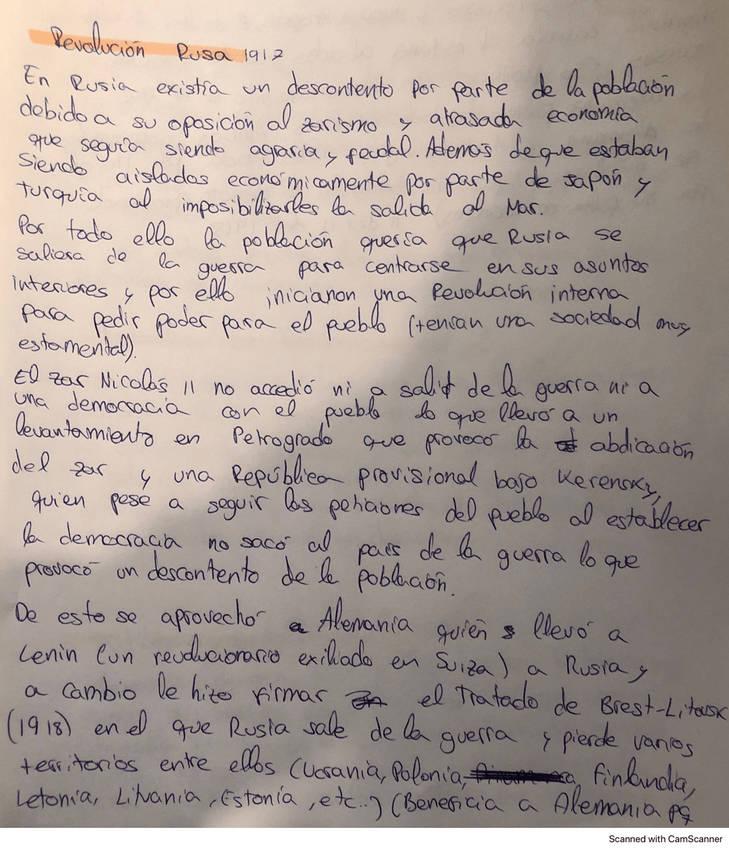 Revolución Rusa 1917
En Rusia existía un descontento por parte de la población
debido a su oposición al zarismo y atrasada economía
que seguía siendo agraria y feudal. Además de que estaban
siendo aislados económicamente por parte de Japón y
Turquía al imposibilitarles la salida al Mar.
Por todo ello la población quería que Rusia se
saliera de la guerra para centrarse en sus asuntos
interiores y por ello iniciaron una Revolución interna
para pedir poder para el pueblo (tenían una sociedad muy
estamental).
El zar Nicolás II no accedió ni a salir de la guerra ni a
una democracia con el pueblo lo que llevó a un
levantamiento en Petrogrado que provocó la abdicación
del zar y una República provisional bajo Kerensky,
quien pese a seguir las peticiones del pueblo al establecer
la democracia no sacó al país de la guerra lo que
provocó un descontento de la población.
De esto se aprovechó Alemania quien llevó a
Lenin (un revolucionario exiliado en Suiza) a Rusia y
a cambio le hizo firmar el Tratado de Brest-Litovsk
(1918) en el que Rusia sale de la guerra y pierde varios
territorios entre ellos (Ucrania, Polonia, Finlandia,
Letonia, Lituania, Estonia, etc..) (Beneficia a Alemania pq
Scanned with CamScanner